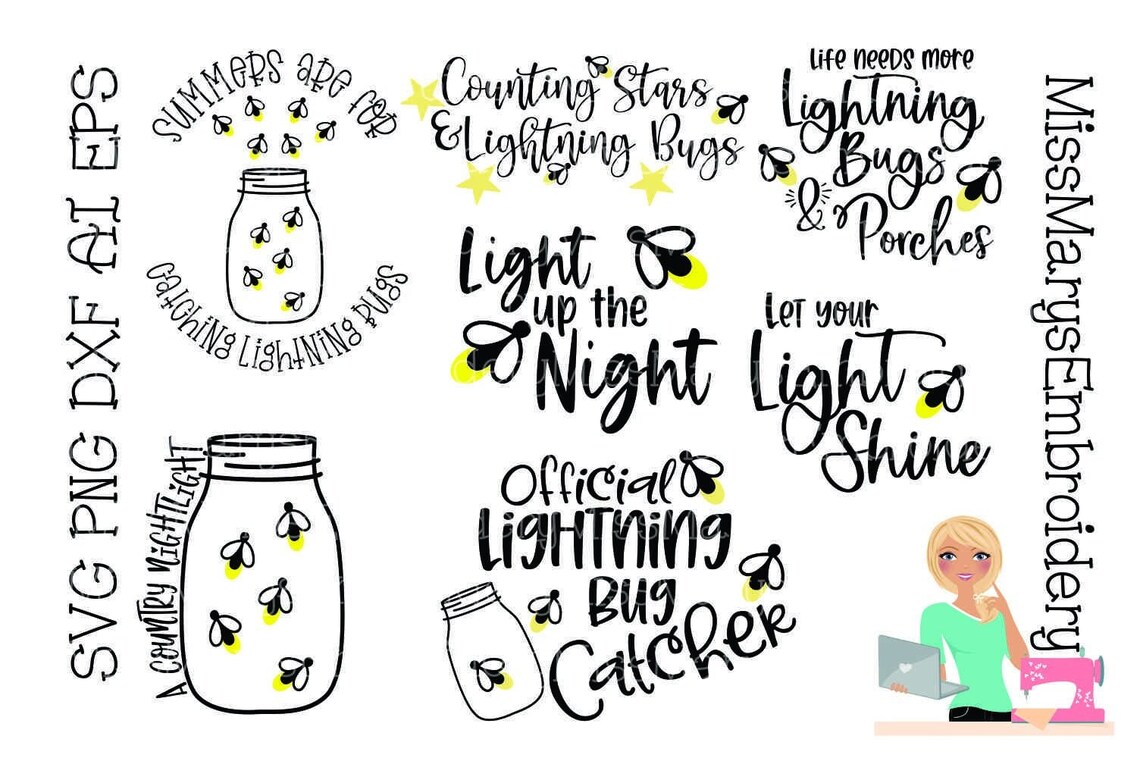 SVG PNG DXF AI EPS
SUMMERS ARE FOR
CATCHING LIGHTNING BUGS
Counting Stars
& Lightning Bugs
Life needs more
Lightning
Bugs
& Porches
Light
up the
Night
Let your
Light
Shine
A COUNTRY NIGHTLIGHT
Official
LIGHTNING
BUG
Catcher
MissMarysEmbroidery